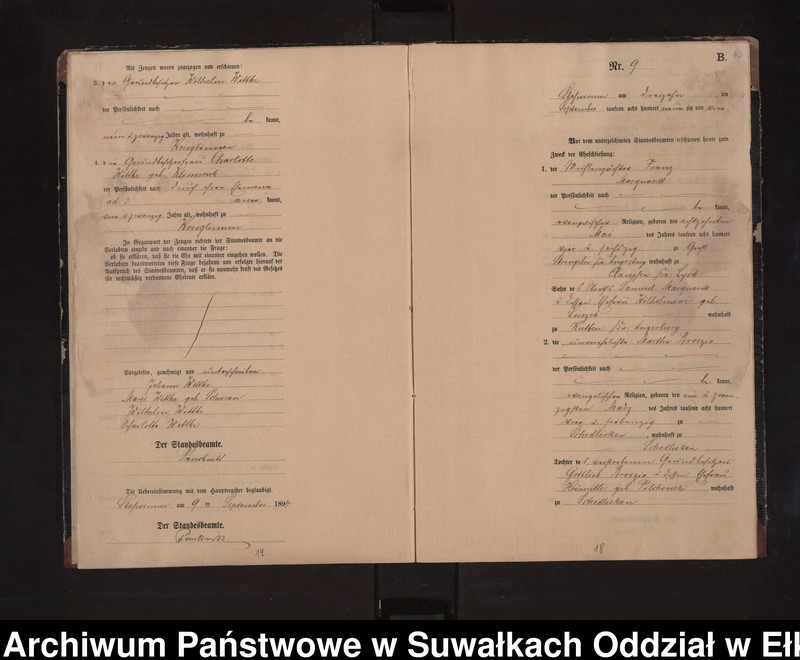 Mit Zeugen waren zugezogen und erschienen:
3. der Grundbesitzer Wilhelm Wittke
der Persönlichkeit nach
be kannt,
neun u zwanzig Jahre alt, wohnhaft zu
4. die Grundbesitzerfrau Charlotte
Wittke geb. Klimmek
der Persönlichkeit nach durch ihren Ehemann
kannt,
vier u zwanzig Jahre alt, wohnhaft zu
In Gegenwart der Zeugen richtete der Standesbeamte an die
Verlobten einzeln und nach einander die Frage:
ob sie erklären, daß sie die Ehe mit einander eingehen wollen. Die
Verlobten beantworteten diese Frage bejahend und erfolgte hierauf der
Ausspruch des Standesbeamten, daß er sie nunmehr kraft des Gesetzes
für rechtmäßig verbundene Eheleute erkläre.
Vorgelesen, genehmigt und unterschrieben
Johann Wittke
Marie Wittke geb.
Wilhelm Wittke
Charlotte Wittke
Der Standesbeamte.
Die Uebereinstimmung mit dem Hauptregister beglaubigt
am 9 ten September 189
Der Standesbeamte.
12
B.
Nr. 9
am dreizehn ten
September tausend acht hundert neunzig und vier
Vor dem unterzeichneten Standesbeamten erschienen heute zum
Zweck der Eheschließung:
1. der Franz
Marquardt
der Persönlichkeit nach
be kannt,
evangelischer Religion, geboren den achtzehnten
Mai des Jahres tausend acht hundert
vier u sechszig zu Groß
Kreis Angerburg wohnhaft zu
Claussen Kreis Lyck
Sohn des Samuel Marquardt
u dessen Ehefrau Wilhelmine geb
wohnhaft
zu Kutten Kreis Angerburg
2. die unverehelichte Martha Broszio
der Persönlichkeit nach
be kannt,
evangelischer Religion, geboren den ein u zwan-
zigsten März des Jahres tausend acht hundert
vier u siebenzig zu
Schedlisken, wohnhaft zu
Schedlisken
Tochter des verstorbenen Grundbesitzers
Gottlieb Broszio u dessen Ehefrau
Henriette geb wohnhaft
zu Schedlisken
18
Archiwum Państwowe w Suwałkach Oddział w Ełk